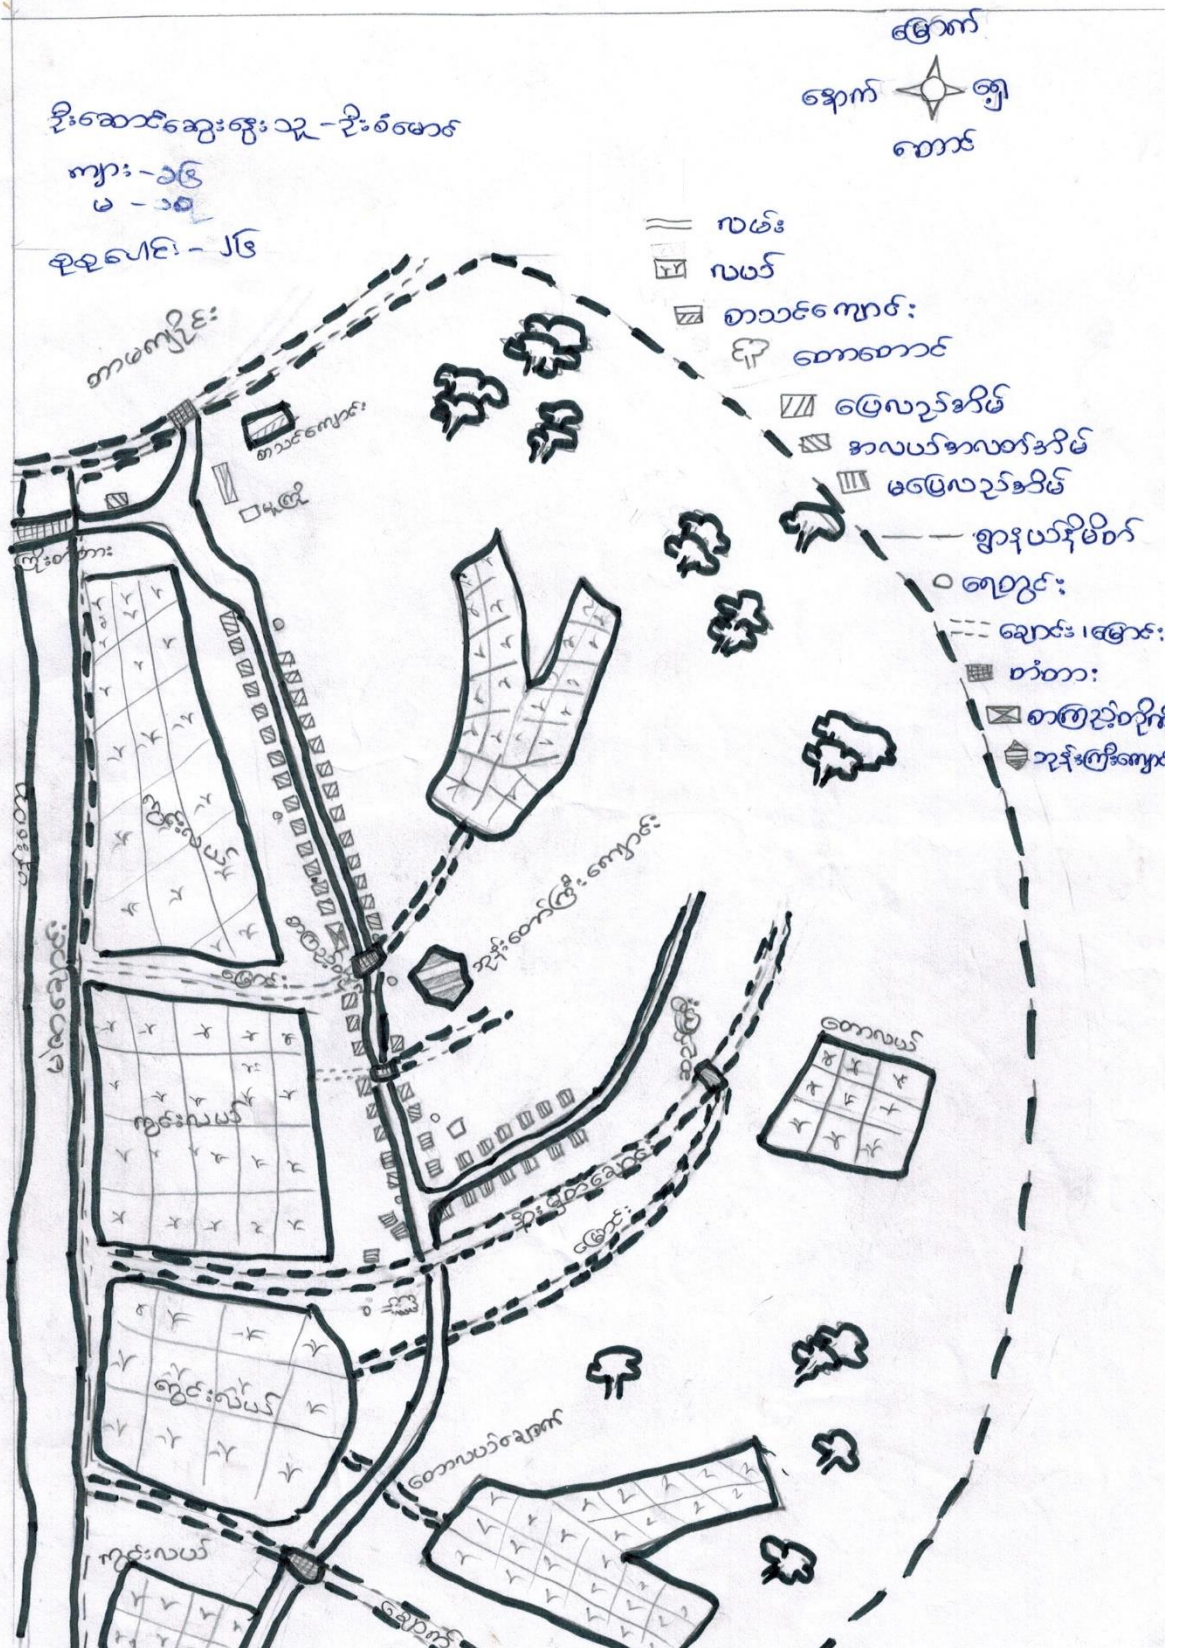 မြောက်
နောက် ရှေ့
တောင်
ဦးဆောင်ဆွေးနွေးသူ - ဦးစံမောင်
ကျား - ၁၆
မ - ၁၀
စုစုပေါင်း - ၂၆
လမ်း
လယ်
စာသင်ကျောင်း
တောတောင်
ပြေလည်အိမ်
အလယ်အလတ်အိမ်
မပြေလည်အိမ်
ရွာနယ်နိမိတ်
ရေတွင်း
ချောင်း၊ မြောင်း
တံတား
စာကြည့်တိုက်
ဘုန်းကြီးကျောင်
စာသင်ကျောင်း
ကြိုးတံတား
ဘုန်းတော်ကြီးကျောင်း
မြောင်း
တောလယ်
ကွင်းလယ်
မြောင်း
ကွင်းလယ်
တောလယ်ချောက်
ကွင်းလယ်